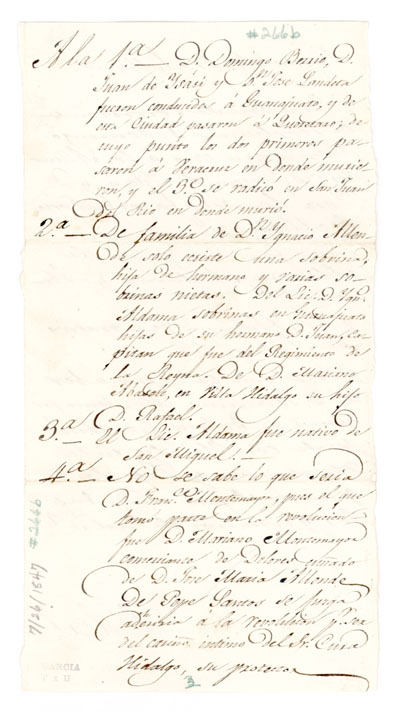 #2666
A la 1.a — D. Domingo Berrio, D.
Juan de Ysasi y D.n Jose Landeta
fueron conducidos á Guanajuato, y de
esta Ciudad pasaron á Queretaro; de
cuyo punto los dos primeros pa-
saron á Veracruz en donde murie-
ron, y el 3.o se radicó en San Juan
del Rio en donde murió.
2.a — De familia de D.n Ygnacio Allen-
de solo ecsiste una sobrina,
hija de hermano y varias so-
brinas nietas. Del Lic. D. Ygn.o
Aldama sobrinas en Guanajuato
hijas de su hermano D. Juan, Ca-
pitan que fue del Regimiento de
la Reyna. De D. Mariano
Abasolo, en Villa Hidalgo su hijo
D. Rafael.
3.a — El Lic. Aldama fue nativo de
San Miguel.
4.a — No se sabe lo que seria
D. Fran.co Montemayor, pues el que
tomó parte en la revolucion
fue D. Mariano Montemayor
comerciante de Dolores, cuñado
de D. Jose Maria Allende
De Pepe Santos se juzga
adhesion a la revolucion y ser
del cariño intimo del Sr. Cura
Hidalgo, su protector
3
#2666
GARCIA